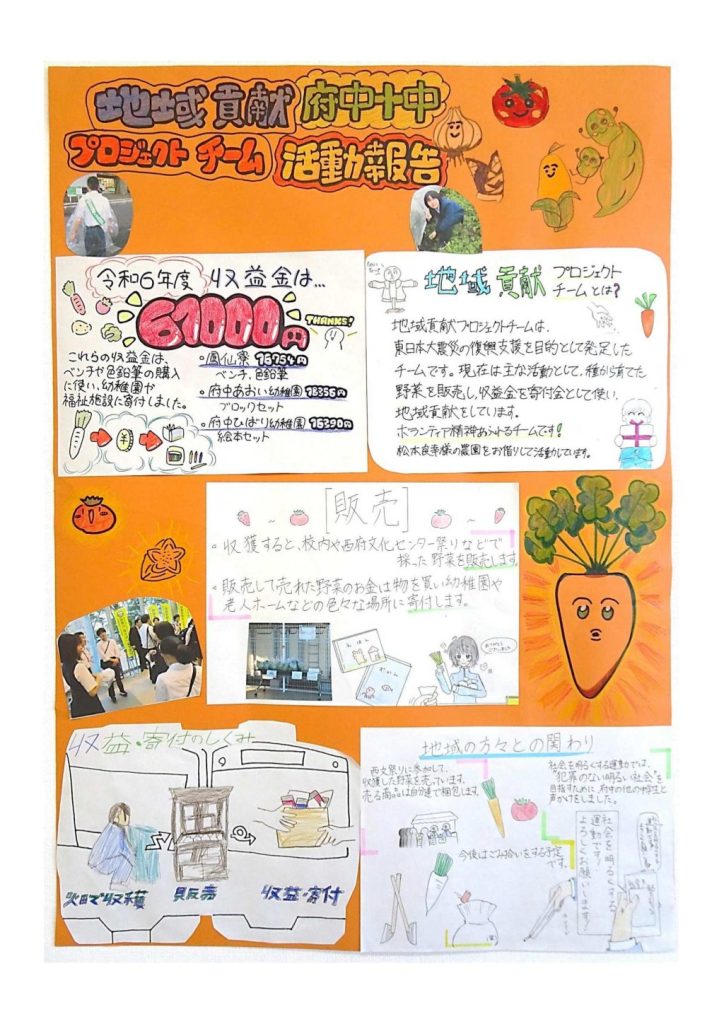 地域貢献 府中十中
プロジェクト チーム 活動報告
令和6年度 収益金は…
61000円
THANKS!
これらの収益金は、
ベンチや色鉛筆の購入
に使い、幼稚園や
福祉施設に寄付しました。
・鳳仙寮 16254円
ベンチ、色鉛筆
・府中あおい幼稚園 18356円
ブロックセット
・府中ひばり幼稚園 16390円
絵本セット
地域貢献 プロジェクト
チームとは?
地域貢献プロジェクトチームは、
東日本大震災の復興支援を目的として発足した
チームです。現在は主な活動として、種から育てた
野菜を販売し、収益金を寄付金として使い、
地域貢献をしています。
ボランティア精神あふれるチームです!
松本良幸様の農園をお借りして活動しています。
[販売]
・収獲すると、校内や西府文化センター祭りなどで
採った野菜を販売します。
・販売して売れた野菜のお金は物を買い幼稚園や
老人ホームなどの色々な場所に寄付します。
えほん
収益・寄付のしくみ
畑で収穫 販売 収益・寄付
地域の方々との関わり
西文祭りに参加して、
収獲した野菜を売っています。
売る商品は自分達で梱包します。
社会を明るくする運動では、
"犯罪のない明るい社会"を
目指すために、府中の他の中学生と
声かけをしました。
今後はごみ拾いをする予定
です。
社会を明るくする
運動です!
よろしくお願いします!